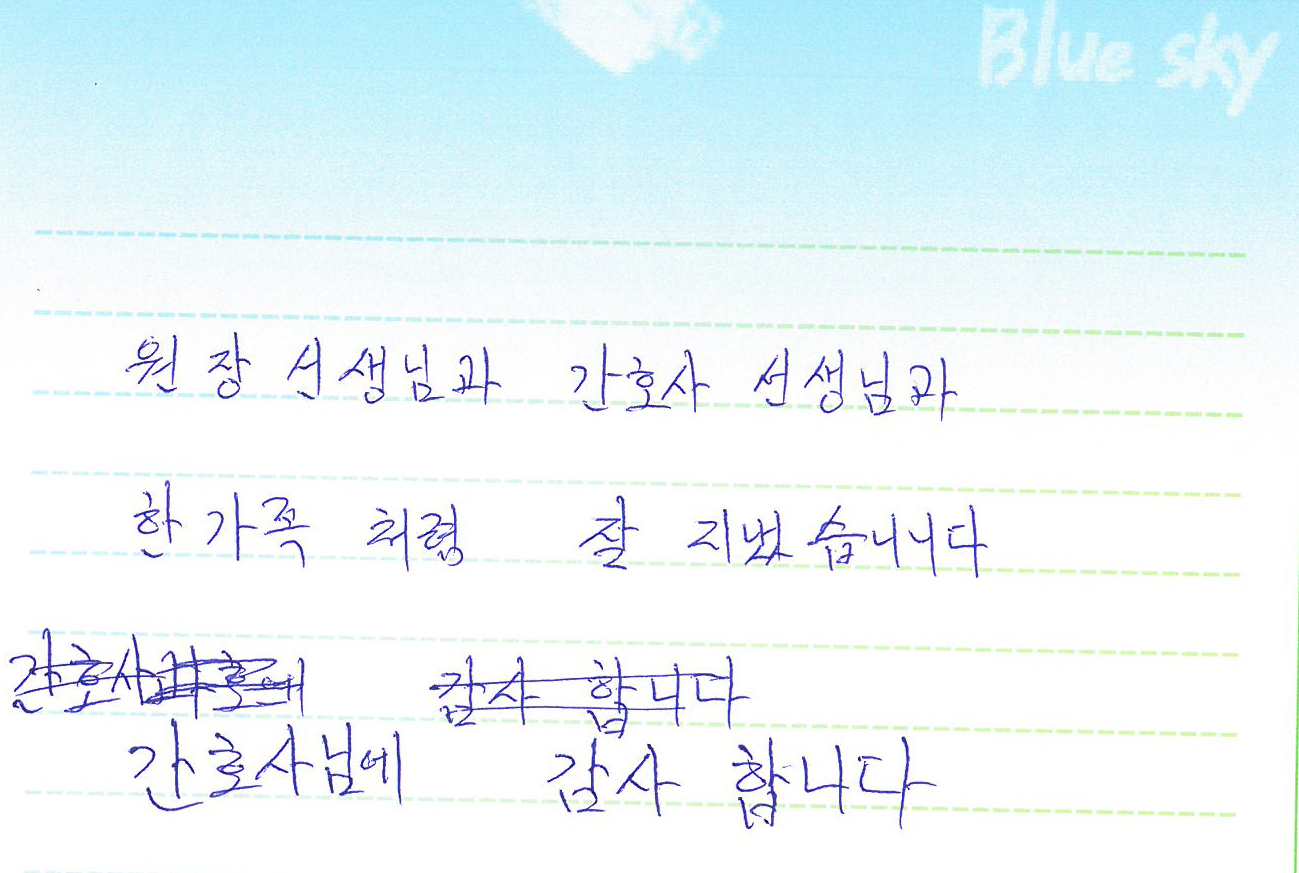 Blue sky
원장 선생님과 간호사 선생님과
한가족 처럼 잘 지냈습니다
감사 합니다
간호사님에 감사 합니다